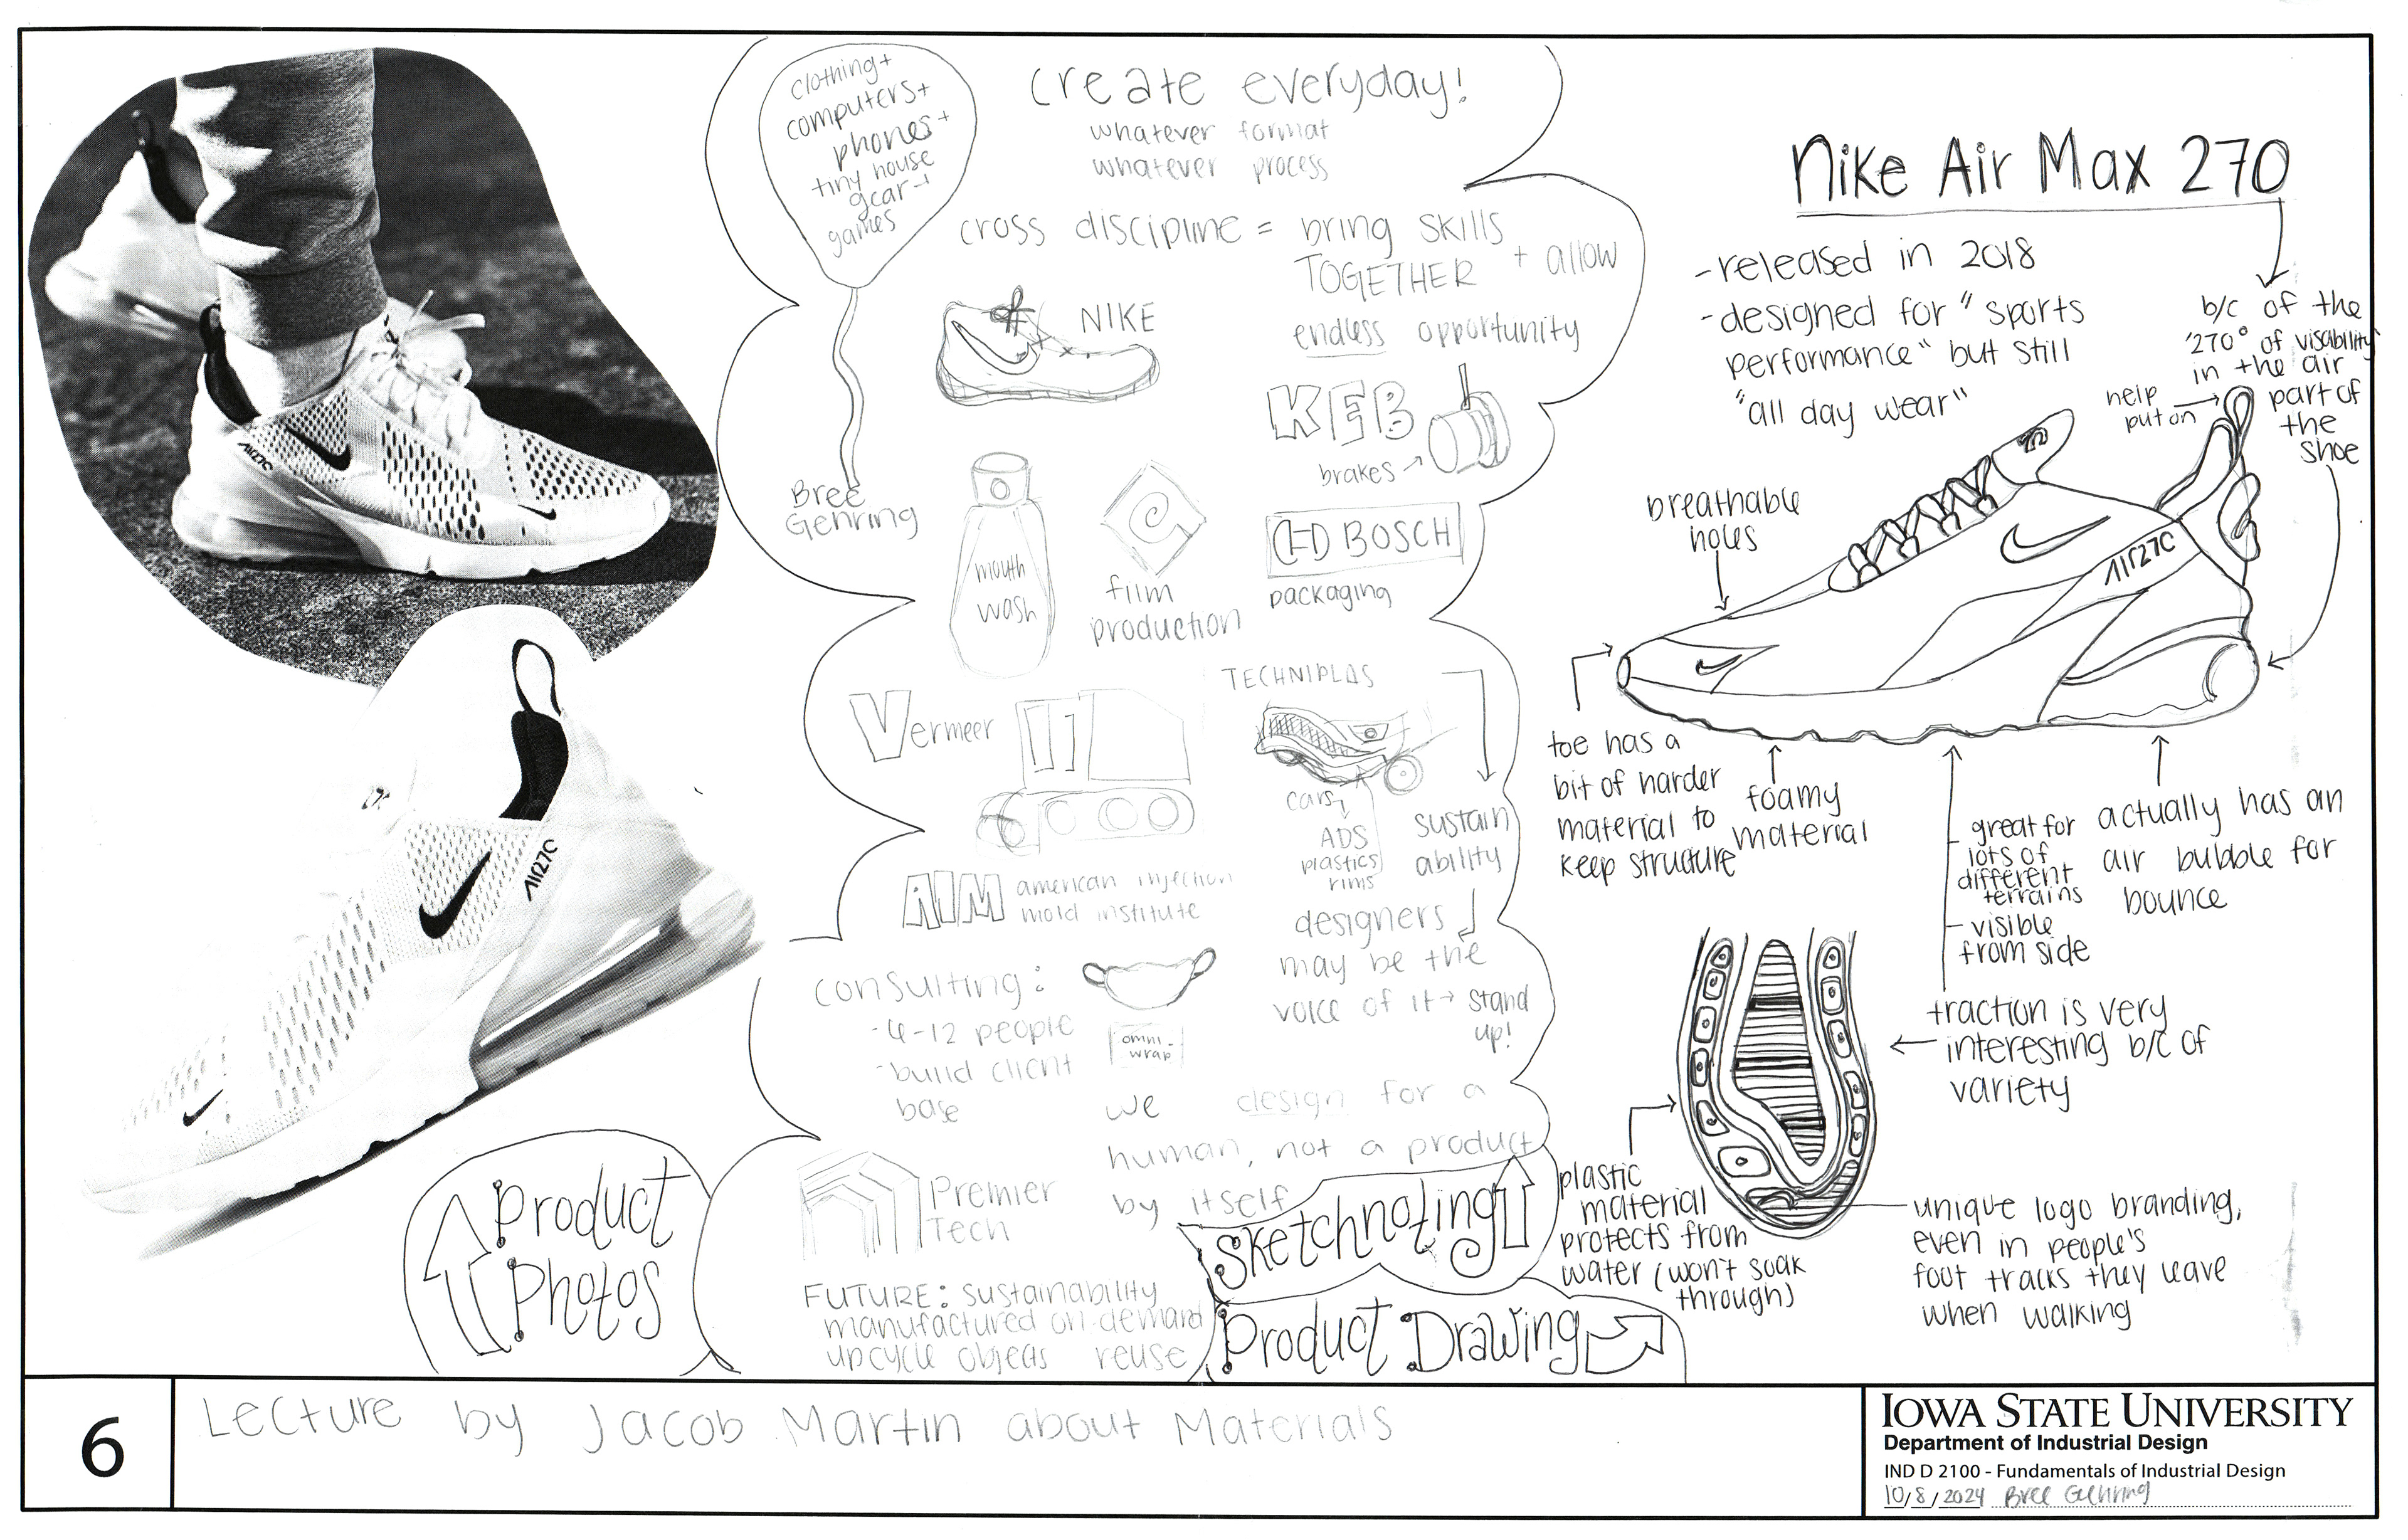 clothing+
computers+
phones+
tiny house
gear+
games
Bree
Gehring
create everyday!
whatever format
whatever process
cross discipline = bring SKILLS
TOGETHER + allow
endless opportunity
NIKE
KEB
brakes
mouth
wash
film
production
BOSCH
packaging
Vermeer
TECHNIPLAS
cars
ADS
plastics
rims
sustain
ability
designers
may be the
voice of it → stand
up!
AIM american injection
mold institute
consulting:
-4-12 people
-build client
base
omni-
wrap
we design for a
human, not a product
by itself
Premier
Tech
FUTURE: sustainability
manufactured on-demand
upcycle objects reuse
AIR27C
AIR27C
Product
Photos
Sketchnoting
Product Drawing
Nike Air Max 270
-released in 2018
-designed for "sports
performance" but still
"all day wear"
b/c of the
"270° of visability
in the air
part of
the
shoe
help
put on
breathable
holes
AIR27C
toe has a
bit of harder
material to
keep structure
foamy
material
- great for
lots of
different
terrains
- visible
from side
actually has an
air bubble for
bounce
traction is very
interesting b/c of
variety
plastic
material
protects from
water (won't soak
through)
unique logo branding,
even in people's
foot tracks they leave
when walking
6
Lecture by Jacob Martin about Materials
IOWA STATE UNIVERSITY
Department of Industrial Design
IND D 2100 - Fundamentals of Industrial Design
10/8/2024 Bree Gehring